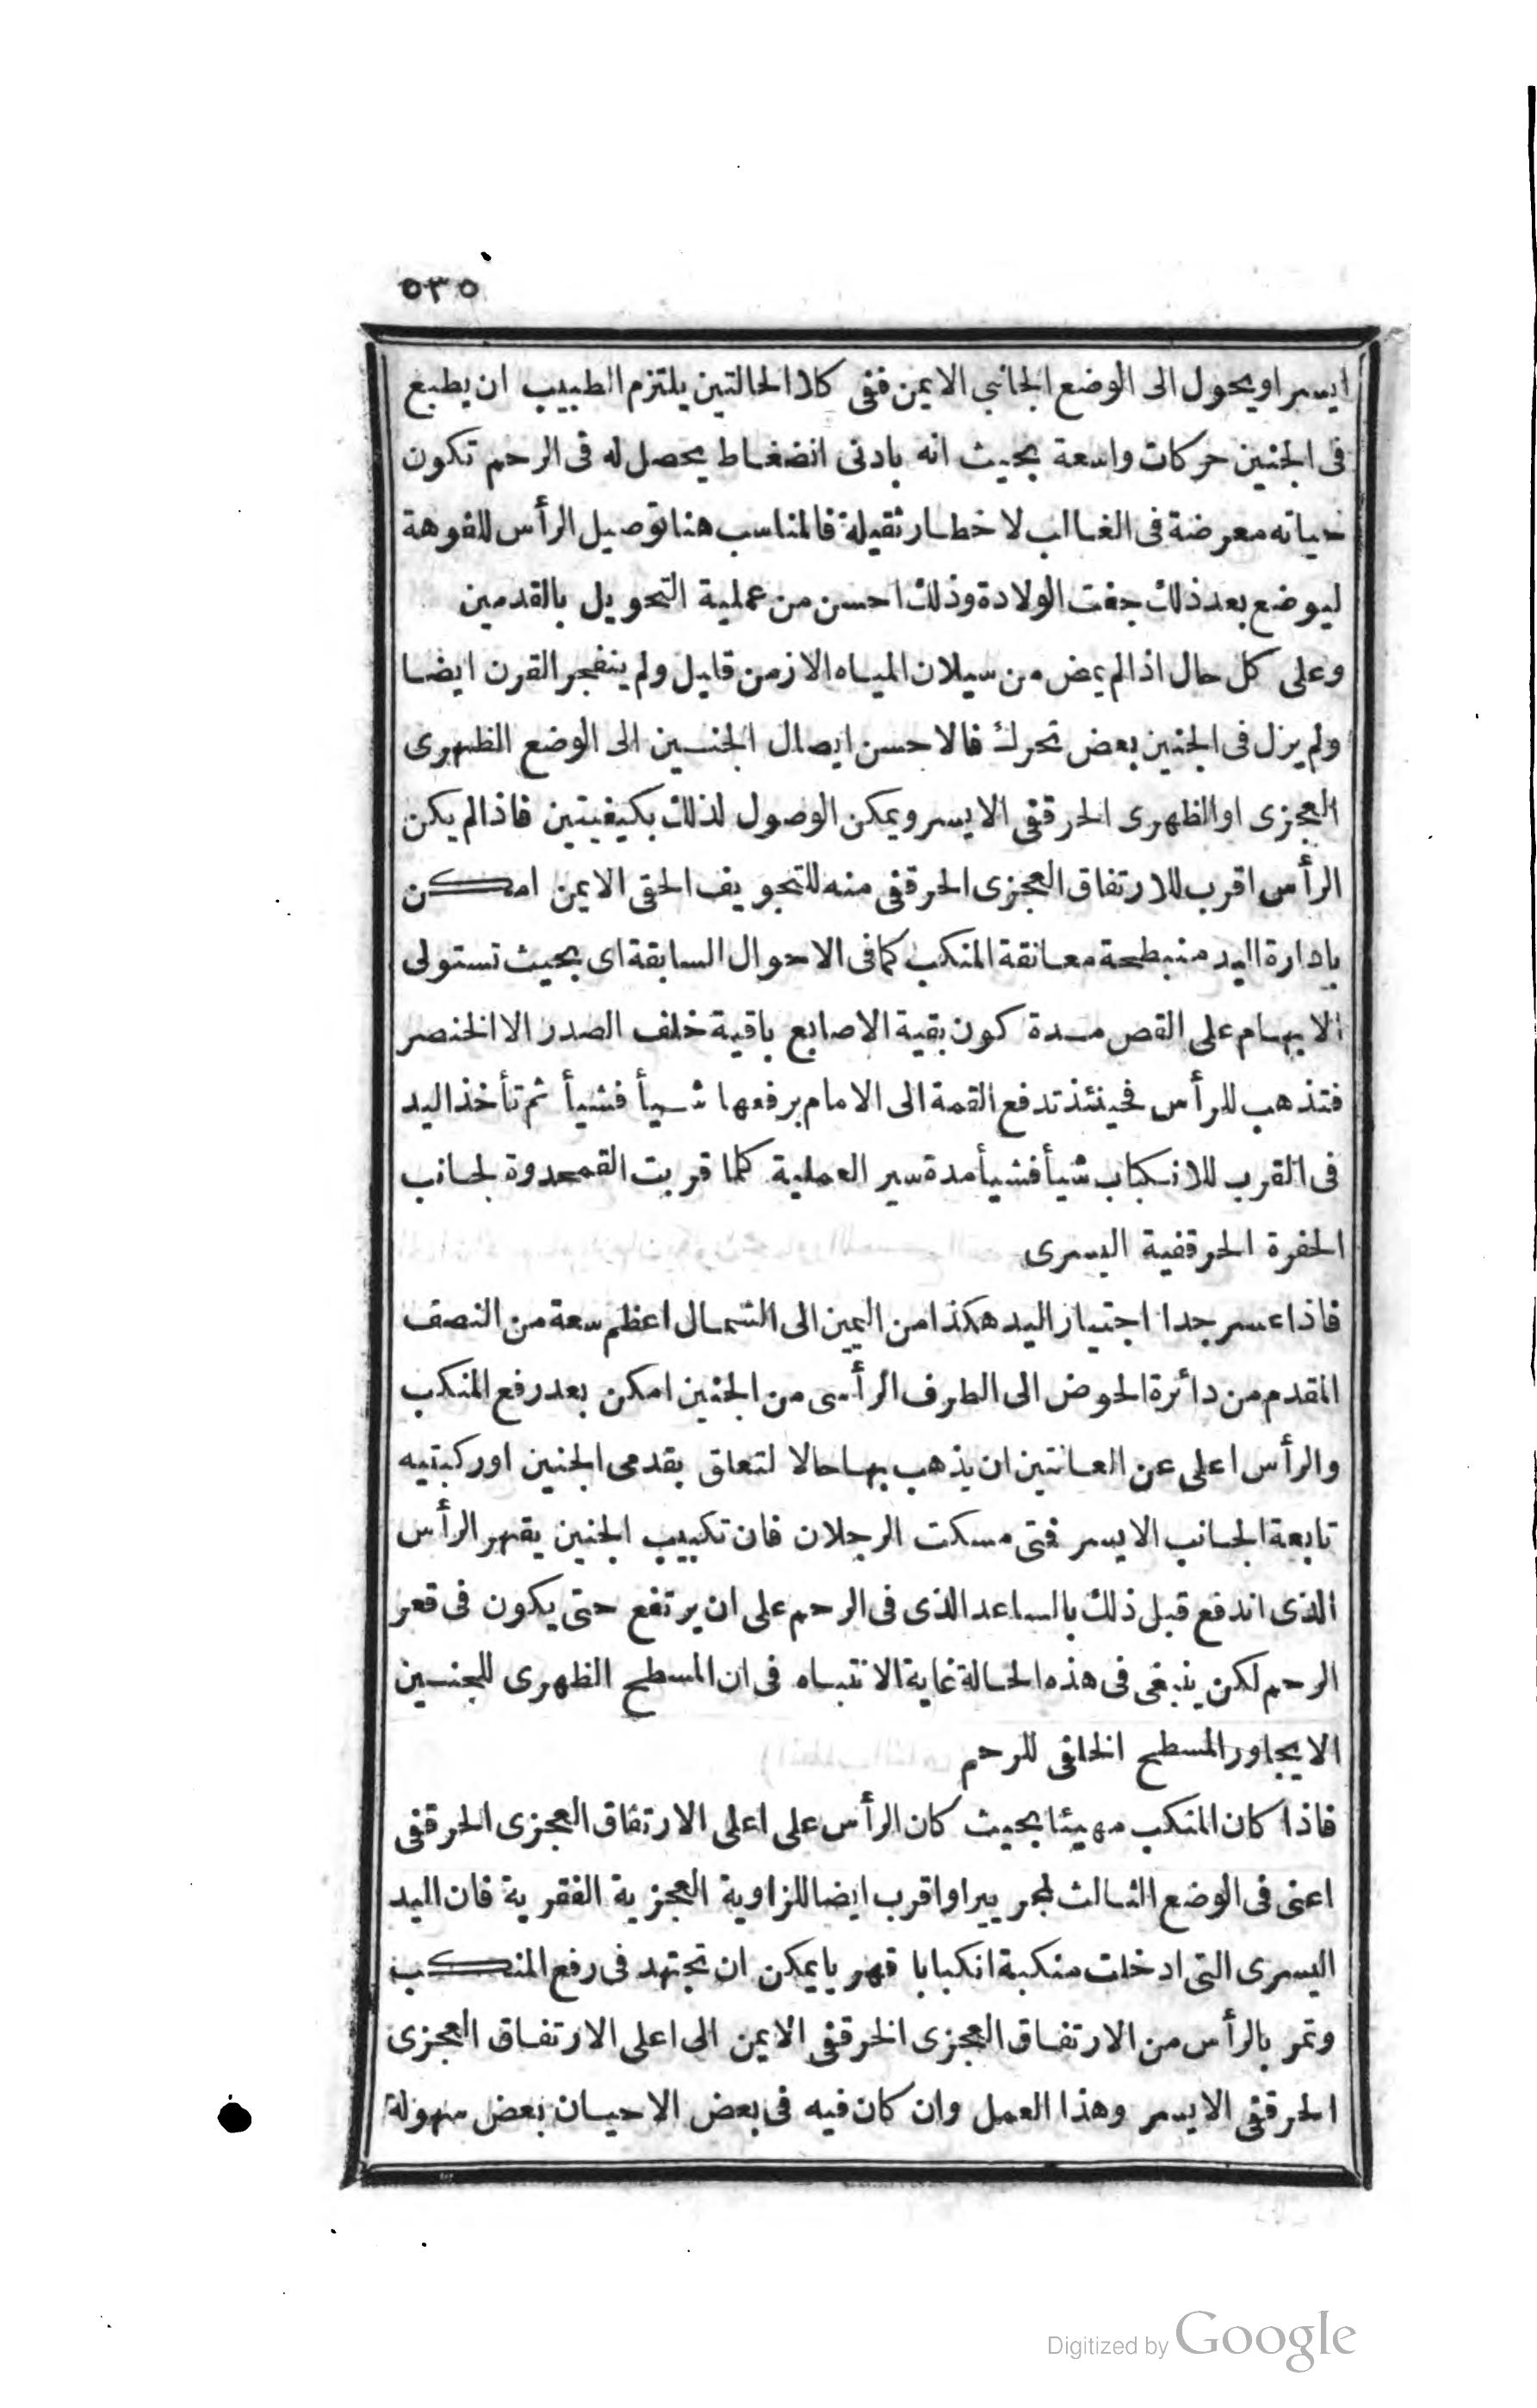 ٥٣٥
ايسر او يحول الى الوضع الجانبى الايمن ففى كلا الحالتين يلتزم الطبيب ان يطبع
فى الجنين حركات واسعة بحيث انه بادنى انضغاط يحصل له فى الرحم تكون
حياته معرضة فى الغالب لاخطار ثقيلة فالمناسب هنا توصيل الرأس للفوهة
ليوضع بعد ذلك جفت الولادة وذلك احسن من عملية التحويل بالقدمين
وعلى كل حال اذا لم يمض من سيلان المياه الا زمن قليل ولم ينفجر القرن ايضا
ولم يزل فى الجنين بعض تحرك فالاحسن ايصال الجنين الى الوضع الظهرى
العجزى او الظهرى الحرقفى الايسر ويمكن الوصول لذلك بكيفيتين فاذا لم يكن
الرأس اقرب للارتفاق العجزى الحرقفى منه للتجويف الحقى الايمن امكن
بادارة اليد منبطحة معانقة المنكب كما فى الاحوال السابقة اى بحيث تستولى
الابهام على القص مدة كون بقية الاصابع باقية خلف الصدر الا الخنصر
فتذهب للرأس فحينئذ تدفع القمة الى الامام برفعها شيأ فشيأ ثم تأخذ اليد
فى القرب للانكباب شيأ فشيأ مدة سير العملية كلما قربت القمحدوة لجانب
الحفرة الحرقفية اليسرى
فاذا عسر جدا اجتياز اليد هكذا من اليمين الى الشمال اعظم سعة من النصف
المقدم من دائرة الحوض الى الطرف الرأسى من الجنين امكن بعد رفع المنكب
والرأس اعلى عن العانتين ان يذهب بها حالا لتعلق بقدمى الجنين او ركبتيه
تابعة الجانب الايسر فمتى مسكت الرجلان فان تكبيب الجنين يقهر الرأس
الذى اندفع قبل ذلك بالساعد الذى فى الرحم على ان يرتفع حتى يكون فى قعر
الرحم لكن ينبغى فى هذه الحالة غاية الانتباه فى ان المسطح الظهرى للجنين
الا يجاور المسطح الخلفى للرحم
فاذا كان المنكب مهيئا بحيث كان الرأس على اعلى الارتفاق العجزى الحرقفى
اعنى فى الوضع الثالث لمجريير او اقرب ايضا للزاوية العجزية الفقرية فان اليد
اليسرى التى ادخلت منكبة انكبابا قهريا يمكن ان تجتهد فى رفع المنكب
وتمر بالرأس من الارتفاق العجزى الحرقفى الايمن الى اعلى الارتفاق العجزى
الحرقفى الايسر وهذا العمل وان كان فيه فى بعض الاحيان بعض سهولة
Digitized by Google